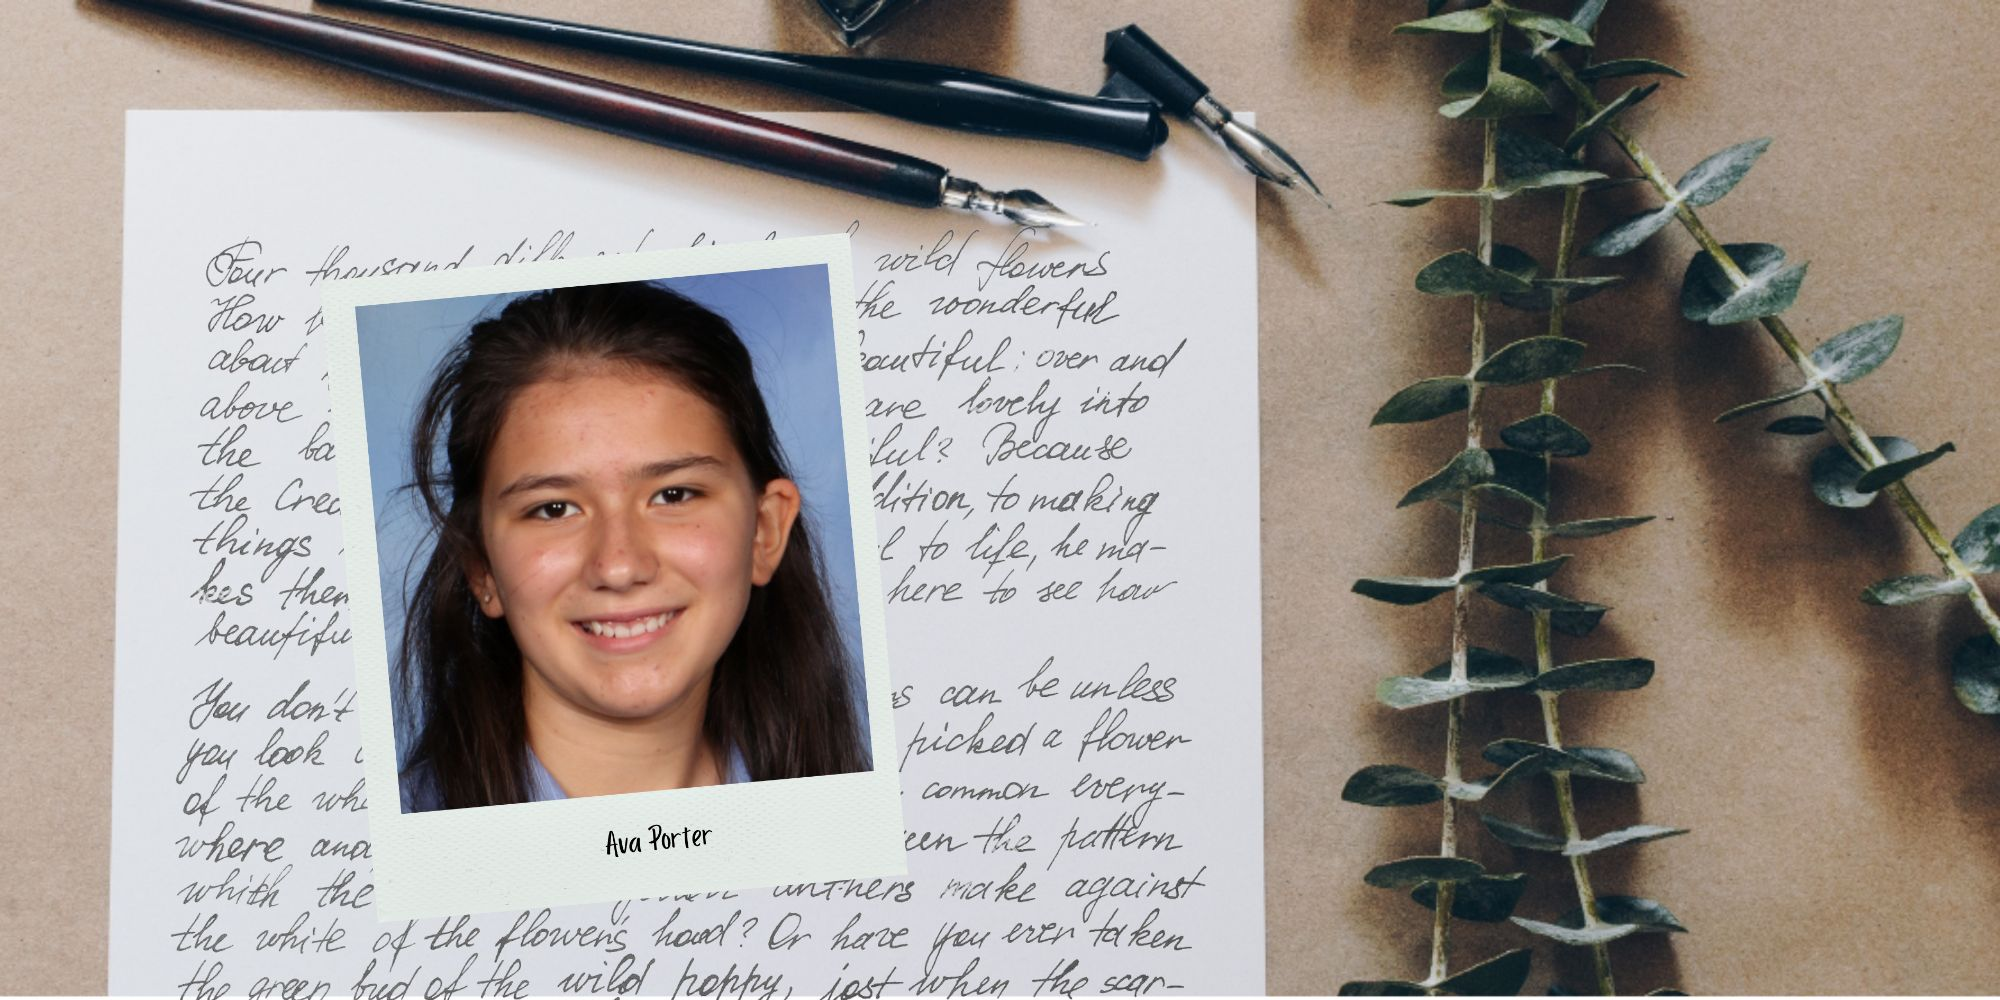 Four thousand wild flowers
How the wonderful
about beautiful: over and
above are lovely into
the Because
the dition, to making
things to life, he ma-
kes here to see how
beautifu
You don't can be unless
you look picked a flower
of the common every-
where and the pattern
whith the anthers make against
the white of the flowers head? Or have you ever taken
the green bud of the wild poppy, jost when the scar-
Ava Porter